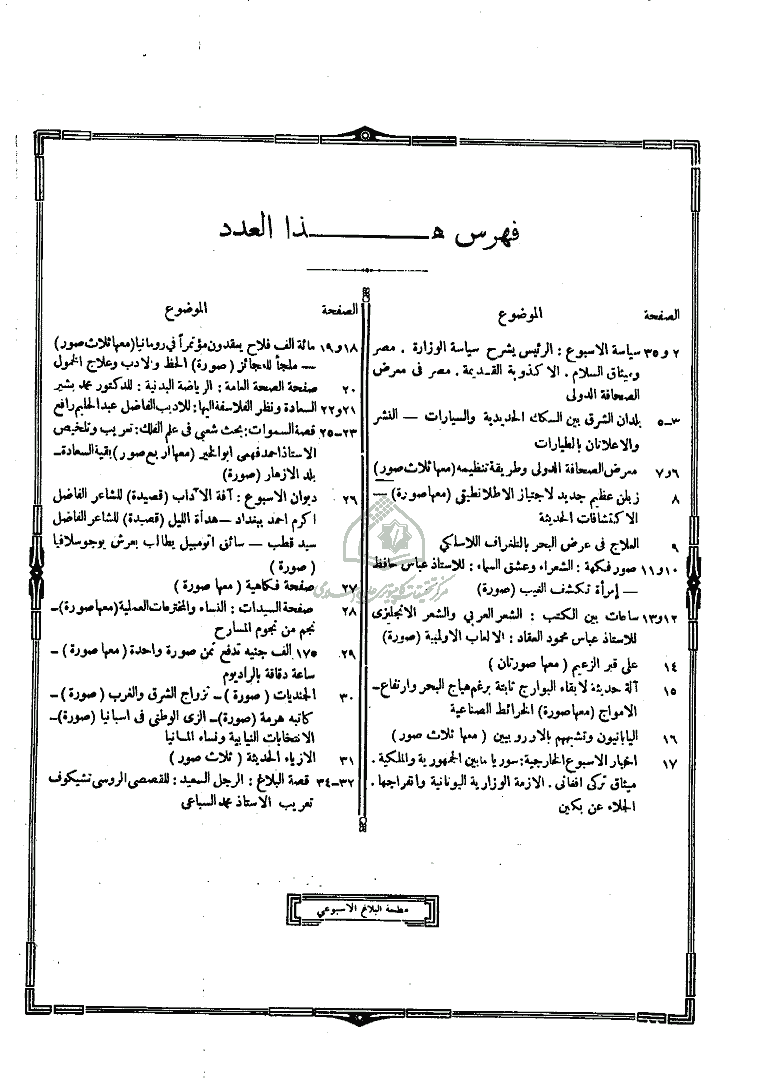 فهرس هـــذا العدد
الصفحة الموضوع
٢ و ٣٥ سياسة الاسبوع : الرئيس يشرح سياسة الوزارة . مصر
وميثاق السلام . الاكذوبة القديمة . مصر فى معرض
الصحافة الدولى
٣ــ٥ بلدان الشرق بين السكك الحديدية والسيارات — النشر
والاعلانان بالطيارات
٦ و ٧ معرض الصحافة الدولى وطريقة تنظيمه (معها ثلاث صور)
٨ زبلن عظيم جديد لاجتياز الاطلانطيقى (معها صورة) —
الاكتشافات الحديثة
٩ العلاج فى عرض البحر بالتلغراف اللاسلكي
١٠ و ١١ صور فكهة : الشعراء وعشق السماء : للاستاذ عباس حافظ
— إمرأة تكشف الغيب (صورة)
١٢ و ١٣ ساعات بين الكتب : الشعر العربي والشعر الانجليزى
للاستاذ عباس محمود العقاد : الالعاب الاولمبية (صورة)
١٤ على قبر الزعيم ( معها صورتان )
١٥ آلة حديثة لابقاء البوارج ثابتة برغم هياج البحر وارتفاع ــ
الامواج (معها صورة) الخرائط الصناعية
١٦ اليابانيون وتشبههم بالاوروبيين ( معها ثلاث صور )
١٧ اخبار الاسبوع الخارجية : سوريا مابين الجمهورية والملكية .
ميثاق تركى افغانى . الازمة الوزارية اليونانية وانفراجها .
الجلاء عن بكين
الصفحة الموضوع
١٨ و ١٩ مائة الف فلاح يعقدون مؤتمراً في رومانيا (معها ثلاث صور)
— ملجأ للعجائز ( صورة ) الحظ والادب وعلاج الخمول
٢٠ صفحة الصحة العامة : الرياضة البدنية : للدكتور محمد بشير
٢١ و ٢٢ السعادة ونظر الفلاسفة اليها : للاديب الفاضل عبد الحليم رافع
٢٣ــ٢٥ قصة السموات : بحث شعبي فى علم الفلك : تعريب وتلخيص
الاستاذ احمد فهمى أبو الخير (معها اربع صور) بقية السعادة ــ
بلد الازهار (صورة)
٢٦ ديوان الاسبوع : آفة الآداب (قصيدة) للشاعر الفاضل
اكرم احمد ببغداد — هدأة الليل (قصيدة) للشاعر الفاضل
سيد قطب — سائق اتومبيل يطالب بعرش يوجوسلافيا
( صورة )
٢٧ صفحة فكاهية ( معها صورة )
٢٨ صفحة السيدات : النساء والمخترعات العملية (معها صورة) ــ
نجم من نجوم المسارح
٢٩ ١٧٥ الف جنيه تدفع ثمن صورة واحدة ( معها صورة ) ــ
ساعة دقاقة بالراديوم
٣٠ الجنديات ( صورة ) ــ تزاوج الشرق والغرب ( صورة ) ــ
كاتبه هرمة (صورة) ــ الزى الوطنى فى اسبانيا (صورة) ــ
الانتخابات النيابية ونساء المانيا
٣١ الازياء الحديثة ( ثلاث صور )
٣٢ــ٣٤ قصة البلاغ : الرجل السعيد : للقصصى الروسى تشيكوف
تعريب الاستاذ محمد السباعى
مطبعة البلاغ الاسبوعي